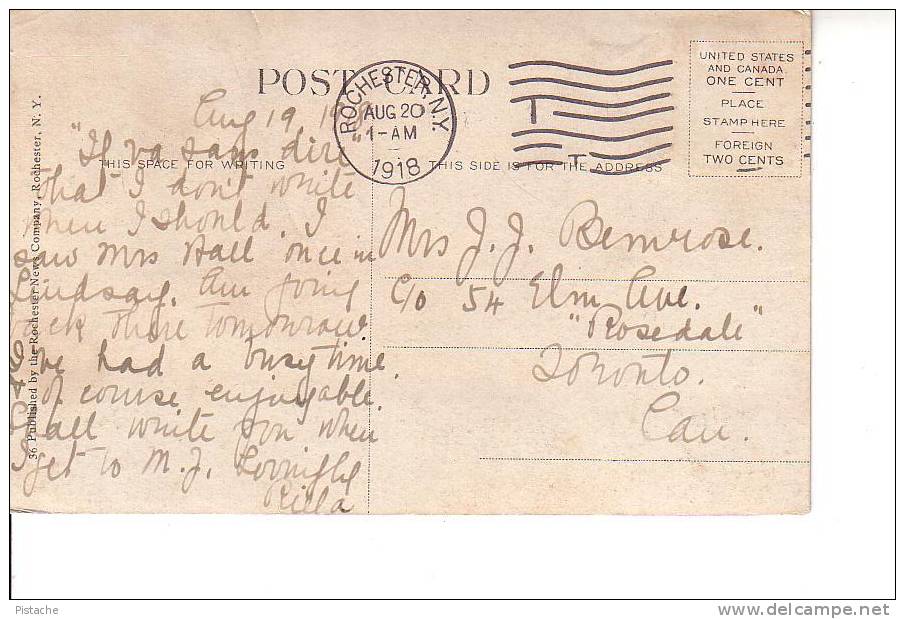 POST CARD
ROCHESTER, N.Y.
AUG 20
1-AM
1918
UNITED STATES
AND CANADA
ONE CENT
PLACE
STAMP HERE
FOREIGN
TWO CENTS
THIS SPACE FOR WRITING
THIS SIDE IS FOR THE ADDRESS
36 Published by the Rochester News Company, Rochester, N. Y.
Aug 19
"If va says dire"
that I don't write
when I should. I
saw Mrs Hall once in
Lindsay. Am going
back there tomorrow.
I've had a busy time
& of course enjoyable.
Shall write you when
I get to M. J. Lovingly
Rilla
Mrs J. J. Bemrose.
c/o 54 Elm Ave.
"Rosedale"
Toronto.
Can.
Pistache
delcampe.net